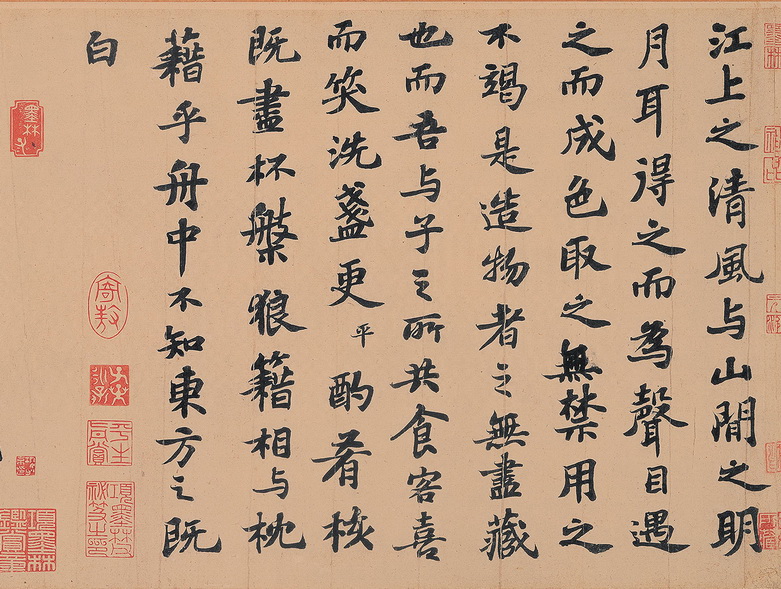 江上之清風与山間之明
月耳得之而為聲目遇
之而成色取之無禁用之
不竭是造物者之無盡藏
也而吾与子之所共食客喜
而笑洗盞更平酌肴核
既盡杯槃狼籍相与枕
藉乎舟中不知東方之既
白
墨林
平生真賞
項墨林